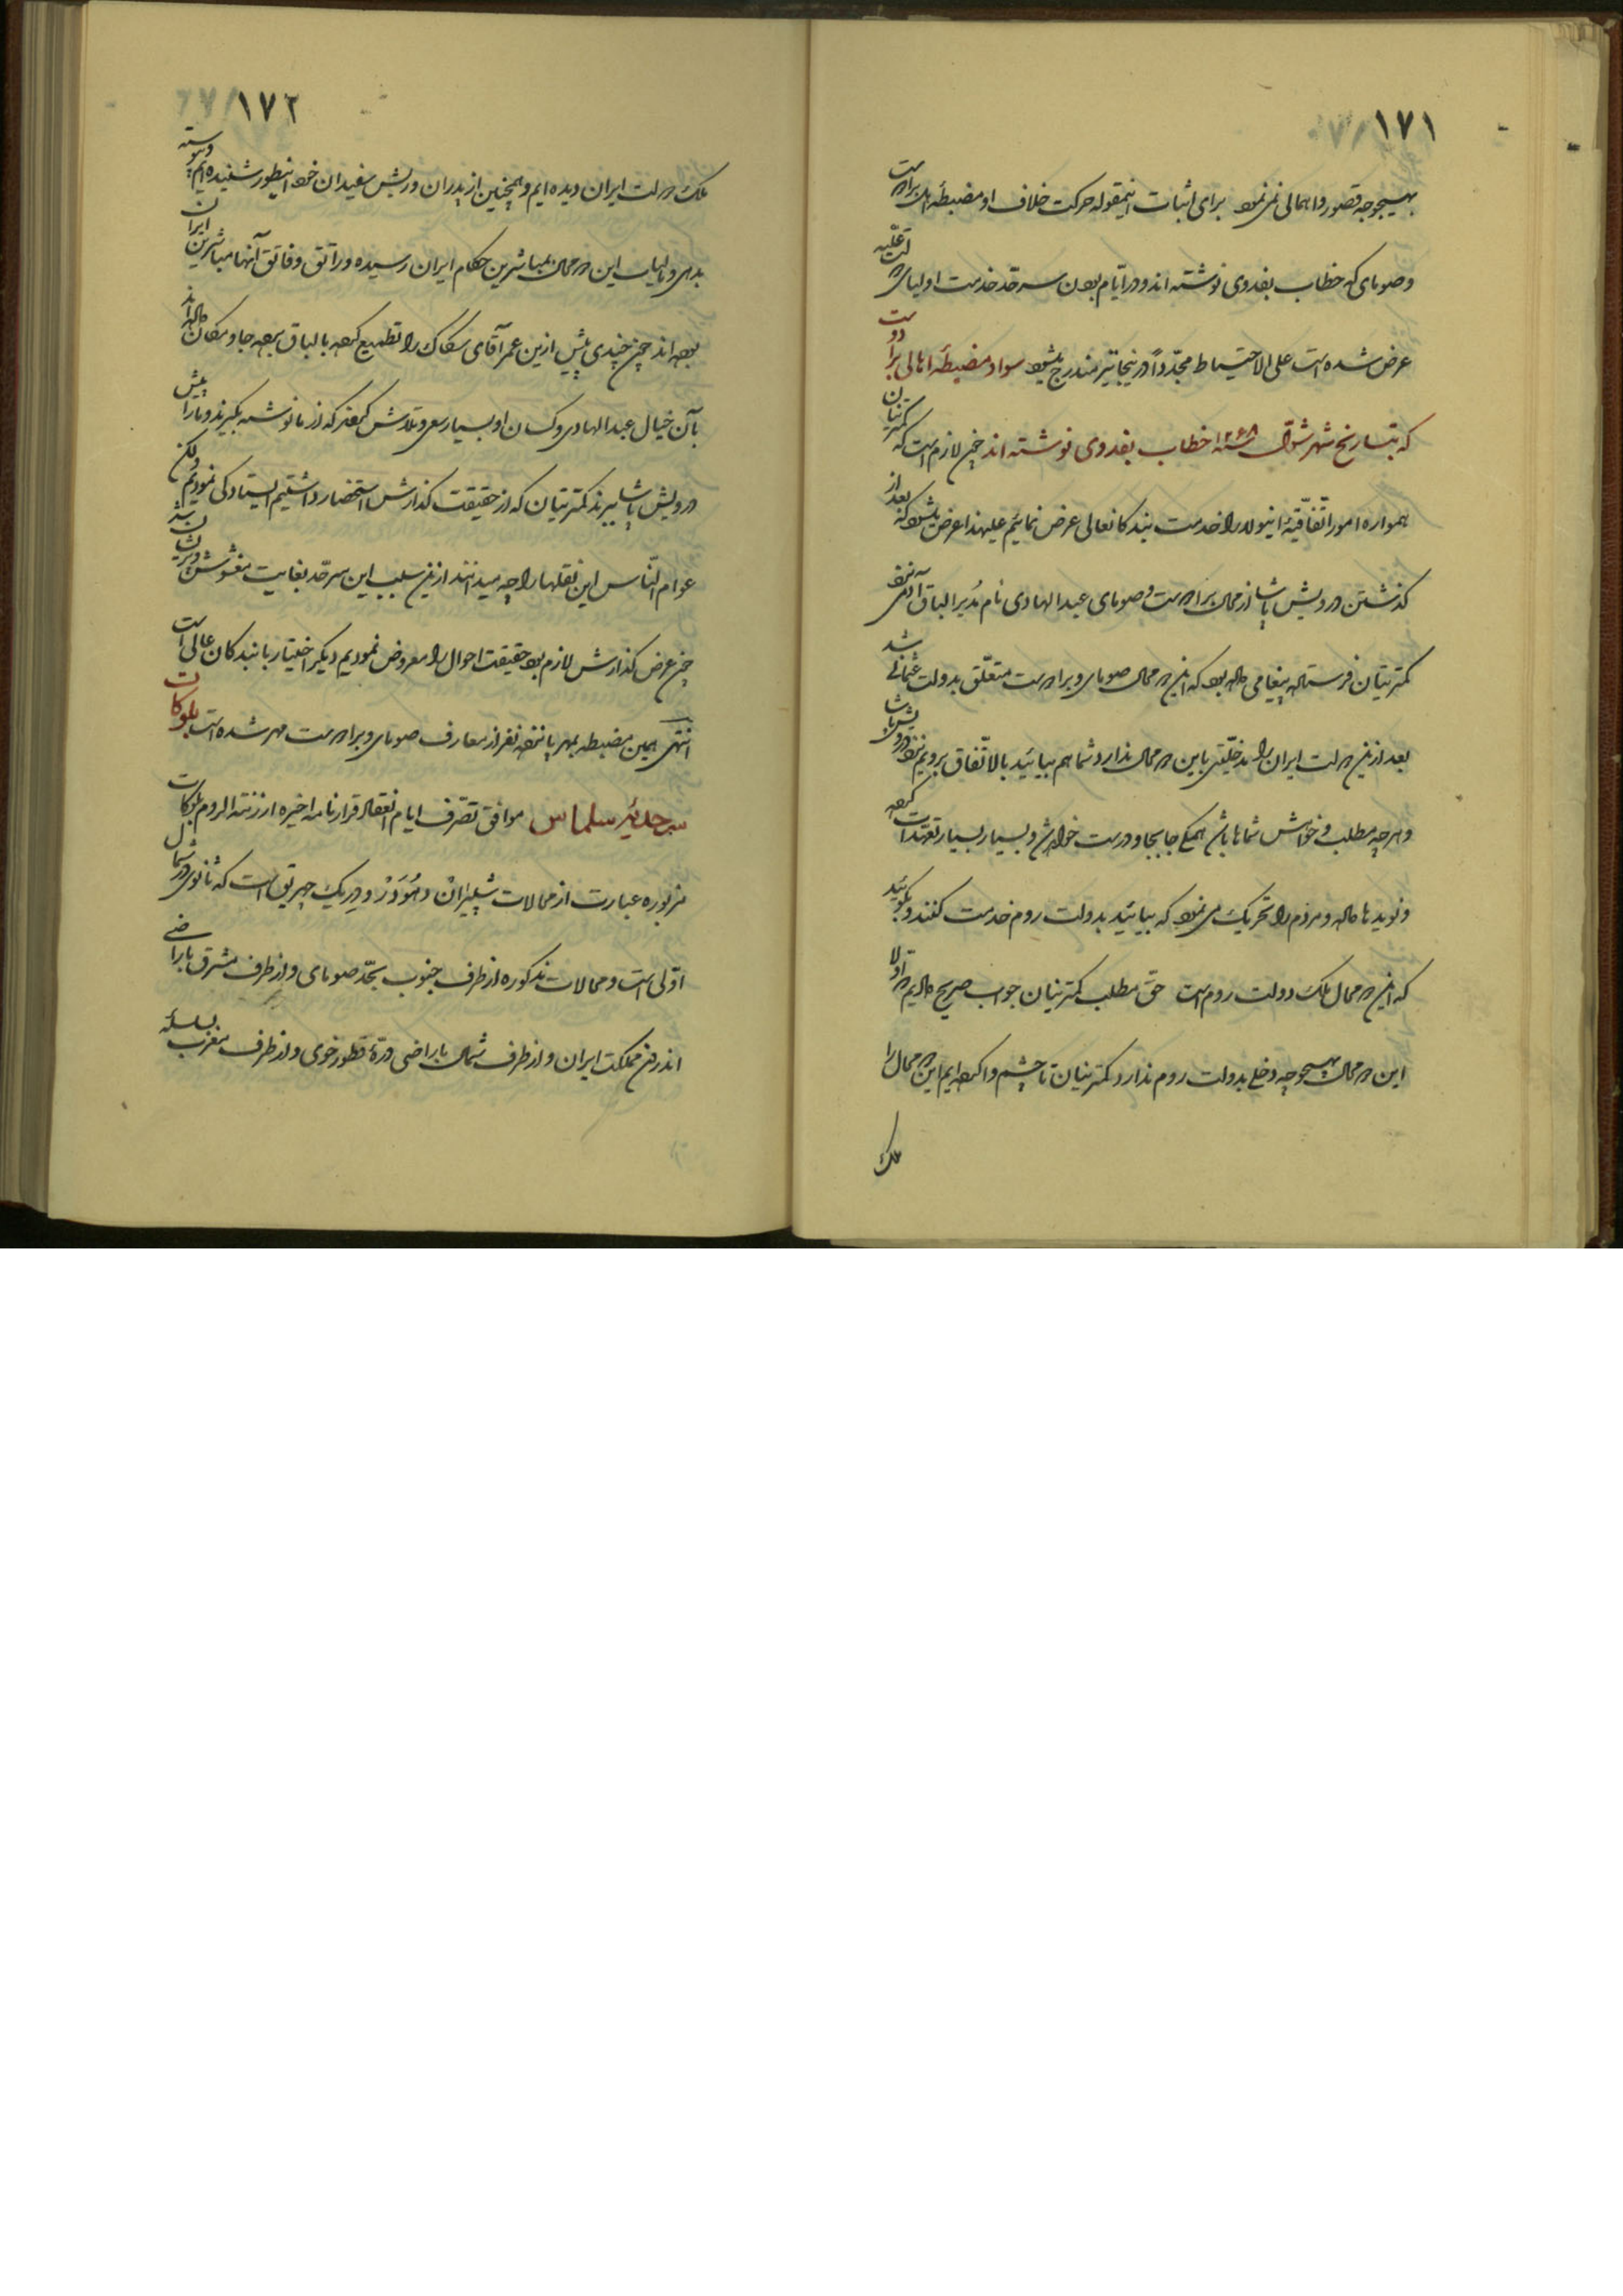 ١٧١
بهیچوجه قصور و اهمالی نمی نمود برای اثبات اینمقوله حرکت خلاف او مضبطهٔ اهل برادوست
و صومای که خطاب بفدوی نوشته اند و در ایّام بودن سرحد خدمت اولیای دولت علیّه
عرض شده است علی الاحتیاط مجدّداً در ینجا نیز مندرج میشود سواد مضبطهٔ اهالی برادوست
که بتاریخ شهر شوّال سنه ١٢٦٨ خطاب بفدوی نوشته اند چون لازم است که کمترینان
همواره امور اتّفاقیّهٔ اینولا را خدمت بندکانعالی عرض نمائیم علیهذا عرض میشود که بعد از
کذشتن درویش پاشا از محال برادوست و صومای عبد الهادی نام مُدیر الباق آدمی نزد
کمترینان فرستاده پیغامی داده بود که این دو محال صومای و برادوست متعلّق بدولت عثمانی شد
بعد ازین دولت ایران را مدخلیّتی باین دو محال ندارد شما هم بیائید بالاتّفاق برویم نزد درویش پاشا
و هر چه مطلب و خواهش شماها باشد همکی جابجا و درست خواهد شد و بسیار بسیار تعهّدات کرده
و نویدها داده و مردم را تحریک می نمود که بیائید بدولت روم خدمت کنند و بکوئید
که این دو محال ملک دولت روم است حق مطلب کمترینان جواب صریح دادیم که اولا
این دو محال بهیچوجه دخلی بدولت روم ندارد کمترینان تا چشم وا کرده ایم این دو محال را
ملک
١٧٢
ملک دولت ایران دیده ایم و همچنین از پدران و ریش سفیدان خود اینطور شنیده ایم و پیوسته
بدهی و مالیات این دو محال بمباشرین حکام ایران رسیده و راتق و فاتق آنها مباشرین ایران
بوده اند چون چندی پیش ازین عمر آقای شکاک را تطمیع کرده بالباق برده جا و مکان داده اند
بآن خیال عبد الهادی و کسان او بسیار سعی و تلاش کردند که از ما نوشته بکیرند و ما را پیش
درویش پاشا ببرند کمترینان که از حقیقت کذارش استحضار داشتیم ایستادکی نمودیم ولکن
عوام النّاس این نقلها را چه میدانند ازین سبب این سرحد بغایت مغشوش و پریشان شد
چون عرض کذارش لازم بود حقیقت احوال را معروض نمودیم دیکر اختیار با بندکان عالی است
انتهی همین مضبطه بمهر پانزده نفر از معارف صومای و برادوست مهر شده است بلوکات
سرحدیّهٔ سلماس موافق تصّرف ایام انعقاد قرارنامه اخیره ارزنة الروم بلوکات
مزبوره عبارت از محالات شپیران و هُوَدَرْ و دِریک چهریق است که ثانوی در شمال
اوّلی است و محالات مذکوره از طرف جنوب بحدّ صومای و از طرف مشرق باراضی
اندرون مملکت ایران و از طرف شمال باراضی درّهٔ قطور خوی و از طرف مغرب بسلسله